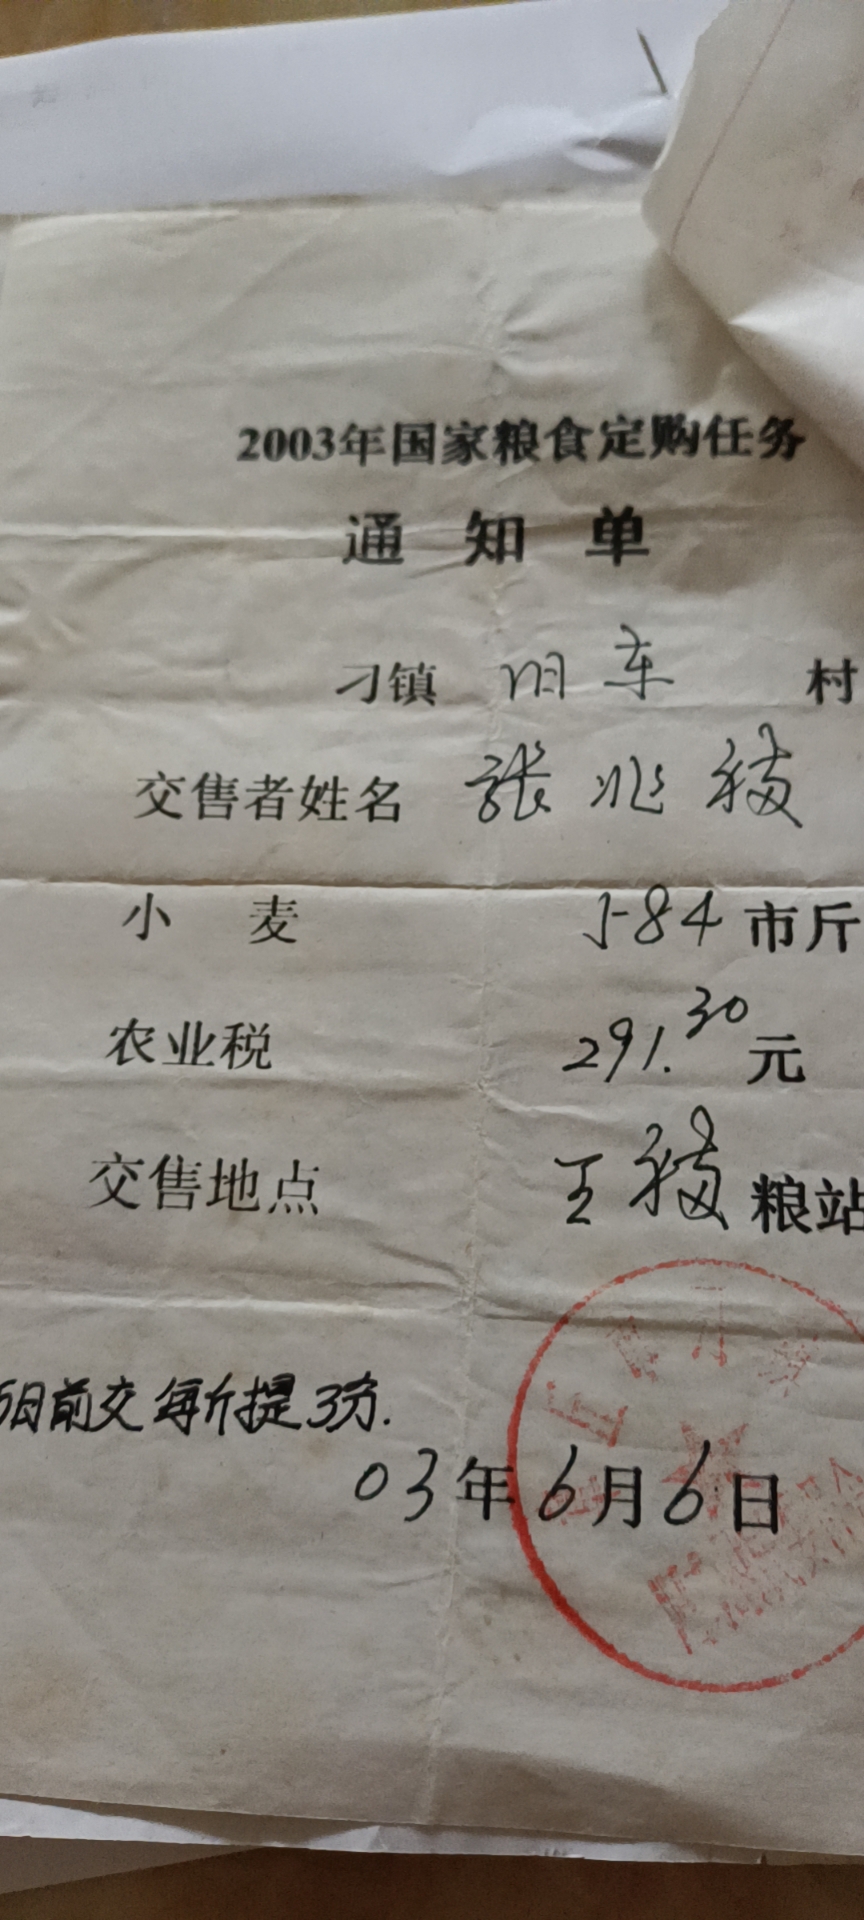 2003年国家粮食定购任务
通知单
刁镇 旧东 村
交售者姓名 張兆福
小麦 584市斤
农业税 291.30元
交售地点 王福粮站
日前交每斤提3分.
03年6月6日